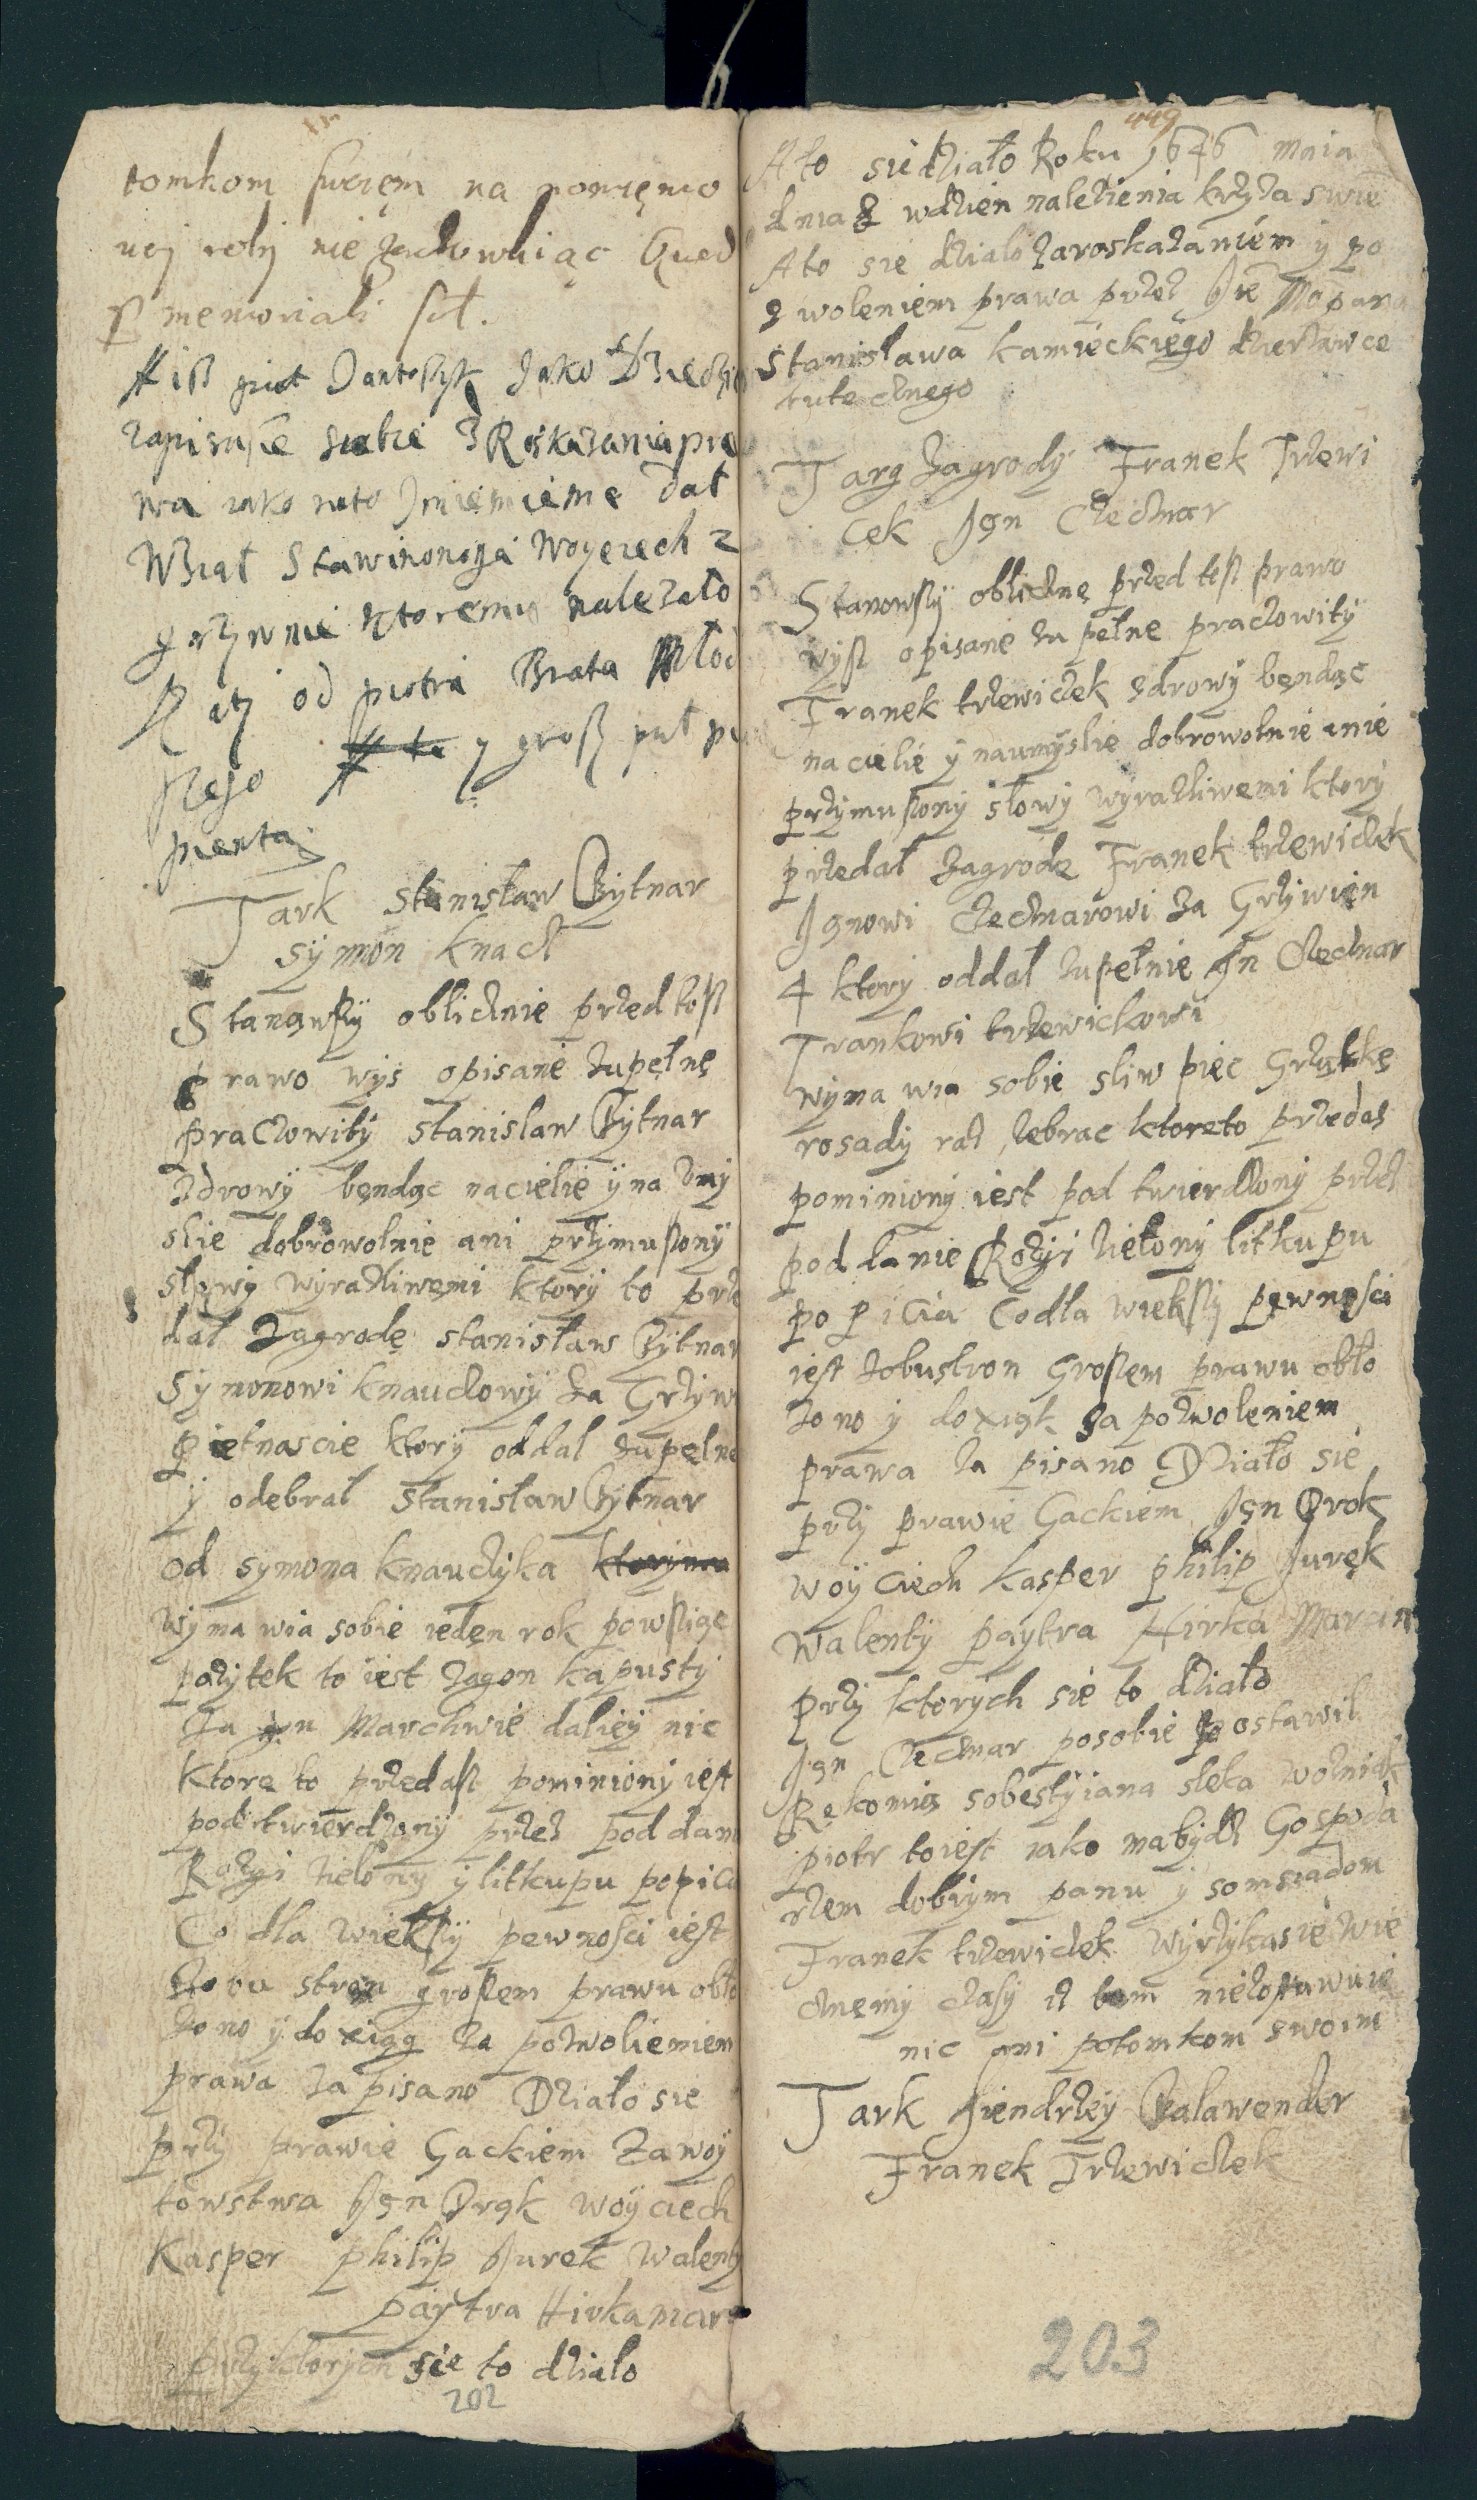 tomkom swięm na pomięnio
nej rolj nie zachowuiąc Quod
pr memoriali sct.
A iß giut Jantoszyk Jako Dziedzic
zapisuße siebie Z Roskazania pra
wa iako na to Jmiemieme dał
Wział Stawinonoga Woyciech 2
grzywnie ktoremu nalezało
Raty od piotra Brata Młod
ßego y groß puł pi
pienta
Tark Stanisław Bytnar
Symon Knacz
Stanowßy oblicznie przed toß
prawo wyß opisane zupełnę
praczowity Stanislaw Bytnar
zdrowy będąc nacielie y na vmy
slie dobrowolnie ani przymußony
słowy wyrazliwemi ktory to prze
dał Zagrodę stanisław Bytnar
Symonowi knauczowy za Grzyw
piętnascie ktory oddal zupelnę
y odebrał Stanisław Bytnar
od Symona knauczyka ktoryma
wyma wia sobie ieden rok powßiąc
pozytek to iest zagon kapusty
Za gon Marchwie daliey nic
ktore to przedaß pominiony iest
pod twierdzony przez pod dani
Rozgi zielony y litkupu popicia
Co dla więkßy pewnosci iest
zobu stron großem prawu obło
zono y do xiąg za pozwoliemiem
prawa za pisano Działo sie
przy prawie Gackiem Zawoy
towstwa Jan Orok woyciech
Kasper philip Jurek walenty
paytra Hirka mar
przyktorych sie to działo
202
449
A to sie działo Roku 1646 maia
dnia 3 wdzien nalezienia krzyza swie
A to sie działo zaroskazaniem y po
zwoleniem prawa przez Je Mo pana
Stanisława kamieckiego dzierzawce
tutecznego
Targ Zagrody Franek Trzewi
cek Jan Czechnar
Stanowßy oblicznę przed teß prawo
wyß opisane zu pełne praczowity
Franek trzewiczek zdrowy bęndąc
na cielie y naumyslie dobrowolnie anie
przymußony słowy wyrazliwemi ktory
przedał zagrodę Franek trzewiczek
Janowi Czechnarowi za Grzywięn
4 ktory oddał zupełnie Jan Czechnar
Frankowi trzewickowi
wyma wia sobie sliw pięc Grządkę
rosady raz zebrac ktoreto przedaß
pominiony iest pod twierdzony przez
pod danie Rozgi zielony litkupu
po p icia Co dla więkßy pewnosci
iest zobustron Großem prawu obło
zono y do xiąk za pozwoleniem
prawa za pisano Działo się
przy prawie Gackiem Jan Orok
woyciech kasper philip Jurek
walenty paytra Hirka Marcin
przy ktorych sie to działo
Jan Czechnar posobie postawil
Rękomią sobestyiana sleka wozniak
piotr toiest iako mabydz Gospoda
rzem dobrym panu y somsiadom
Franek trzewiczek wyrzykasię wie
cznęmy czasy iz tam niezostawuię
nic ani potomkom swoim
Tark Jiendrzey Balawender
Franek Trzewiczek
203